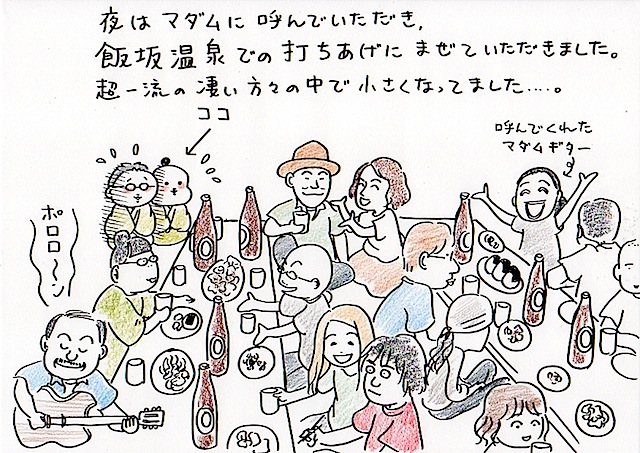 夜は マダムに 呼んでいただき,
飯坂温泉での打ちあげに まぜていただきました。
超一流の 凄い方々の中で 小さくなってました……。
ココ
呼んでくれた
マダムギター
ポロロ〜ン